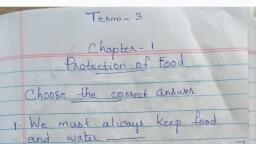 Term - 3
Chapter - 1
Protection of Food
Choose the correct answer
1. We must always keep food
and water